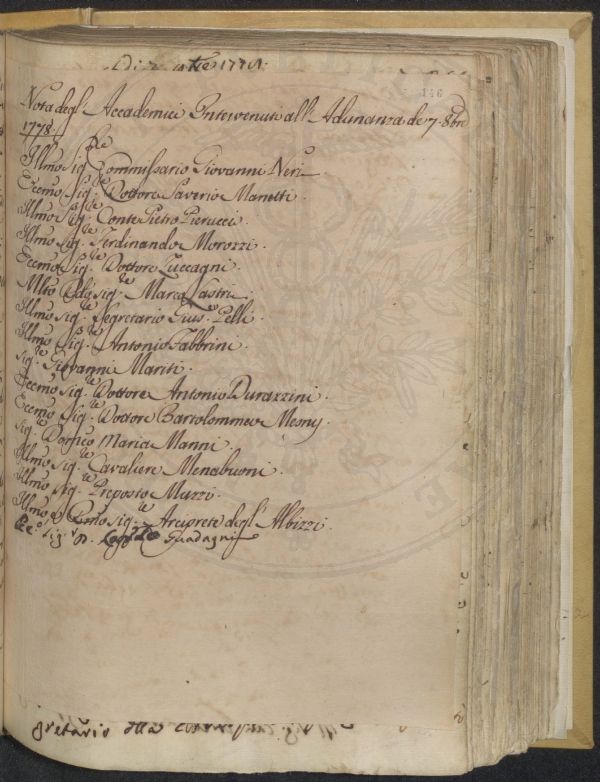 146
Nota degl' Accademici Intervenuti all' Adunanza de 7. 8bre
1778.
Illmo Sig.re Commissario Giovanni Neri
Ecemo Sig.re Dottore Saverio Manetti.
Illmo Sig.re Conte Pietro Pierucci.
Illmo Sig.re Ferdinando Morozzi.
Ecemo Sig.re Dottore Zuccagni.
Mlto Rdo Sig.re Marco Lastri.
Illmo Sig.re Segretario Gius.e Pelli.
Illmo Sig.re Antonio Fabbrini.
Sig.re Giovanni Mariti.
Ecemo Sig.re Dottore Antonio Durazzini.
Ecemo Sig.re Dottore Bartolommeo Mesny.
Sig.re Domco Maria Manni.
Illmo Sig.re Cavaliere Menabuoni.
Illmo Sig.re Preposto Muzzi.
Illmo e Rmo Sig.re Arciprete degl' Albizzi.
Ecc.o Sig.r D. Leop.do Guadagni
gretario della